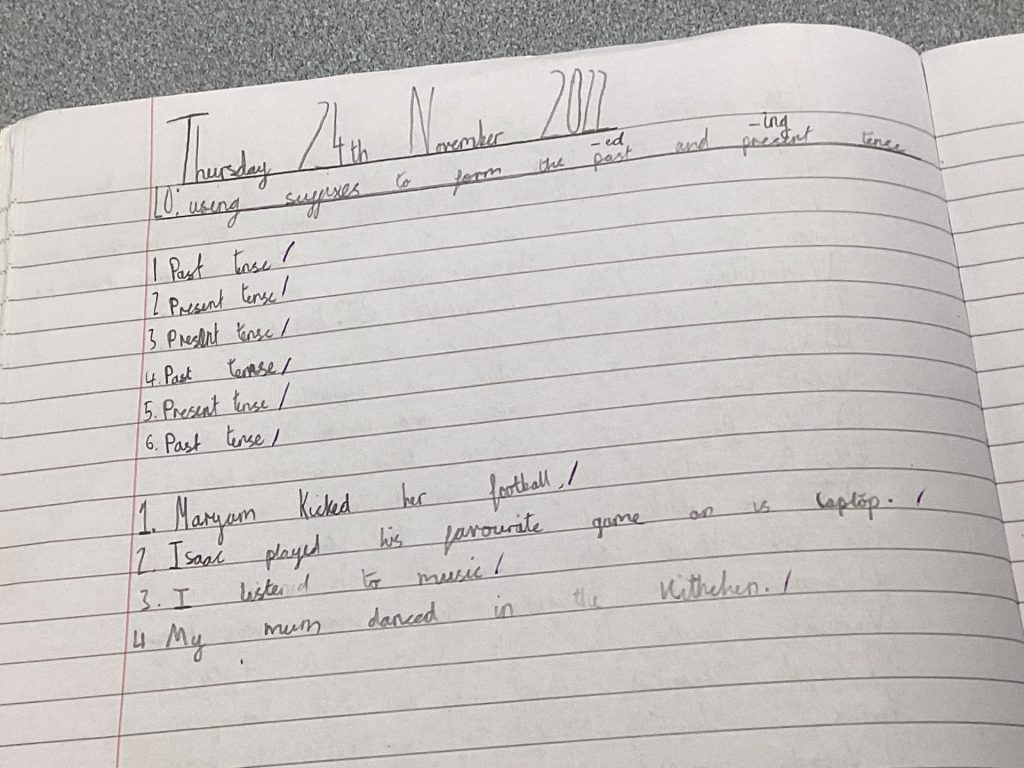 Thursday 24th November 2022
-ed -ing
LO: using suffixes to form the past and present tense
1 Past tense /
2 Present tense /
3 Present tense /
4. Past tense /
5. Present tense /
6. Past tense /
1. Maryam Kicked her football. /
2. Isaac played his favourate game on is laptop. /
3. I listend to music /
4 My mum danced in the Kithchen. /